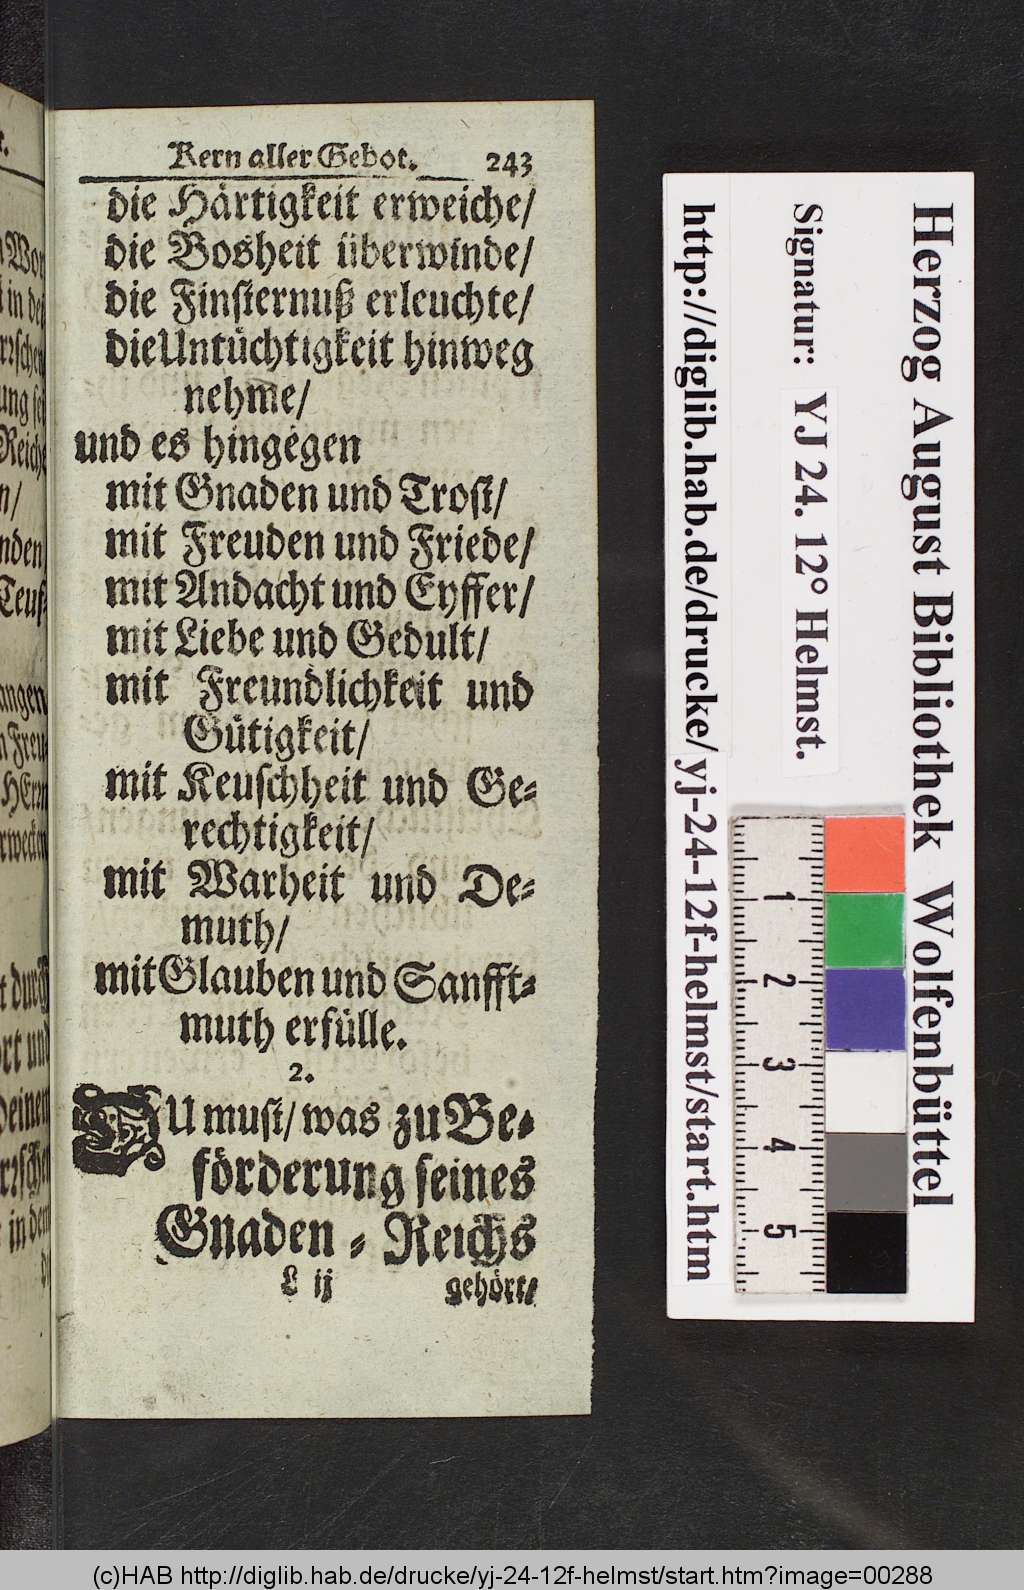 Kern aller Gebot. 243
die Härtigkeit erweiche/
die Bosheit überwinde/
die Finsternuß erleuchte/
die Untüchtigkeit hinweg
nehme/
und es hingegen
mit Gnaden und Trost/
mit Freuden und Friede/
mit Andacht und Eyffer/
mit Liebe und Gedult/
mit Freundlichkeit und
Gütigkeit/
mit Keuschheit und Ge-
rechtigkeit/
mit Warheit und De-
muth/
mit Glauben und Sanfft-
muth erfülle.
2.
DU must/ was zu Be-
förderung seines
Gnaden-Reichs
L ij gehört/
Herzog August Bibliothek Wolfenbüttel
Signatur: YJ 24. 12° Helmst.
http://diglib.hab.de/drucke/yj-24-12f-helmst/start.htm
1
2
3
4
5
(c)HAB http://diglib.hab.de/drucke/yj-24-12f-helmst/start.htm?image=00288